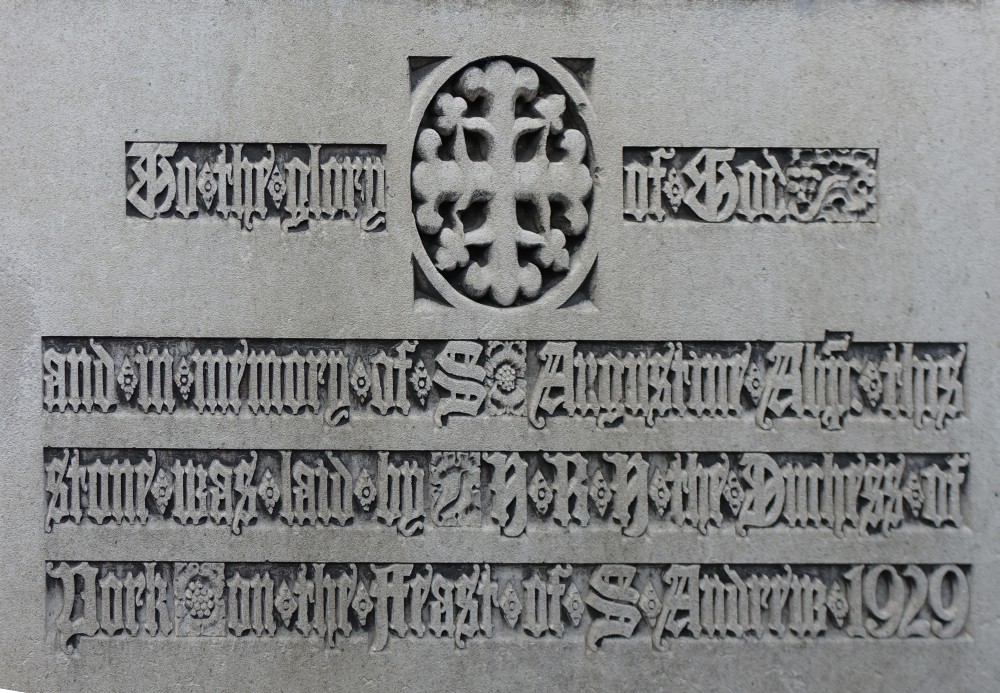 To the glory of God
and in memory of S Augustine Abp. this
stone was laid by H R H the Duchess of
York on the Feast of S Andrew 1929